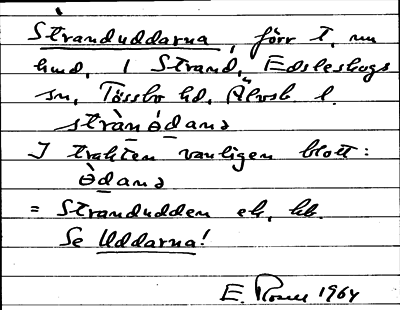 Stranduddarna, förr t. nu
hmd, i Strand, Edsleskogs
sn, Tössbo hd, Älvsb l.
strànó̱danə
I trakten vanligen blott:
ò̱danə
= Strandudden ek, kb.
Se Uddarna!
E. Rosell 1964